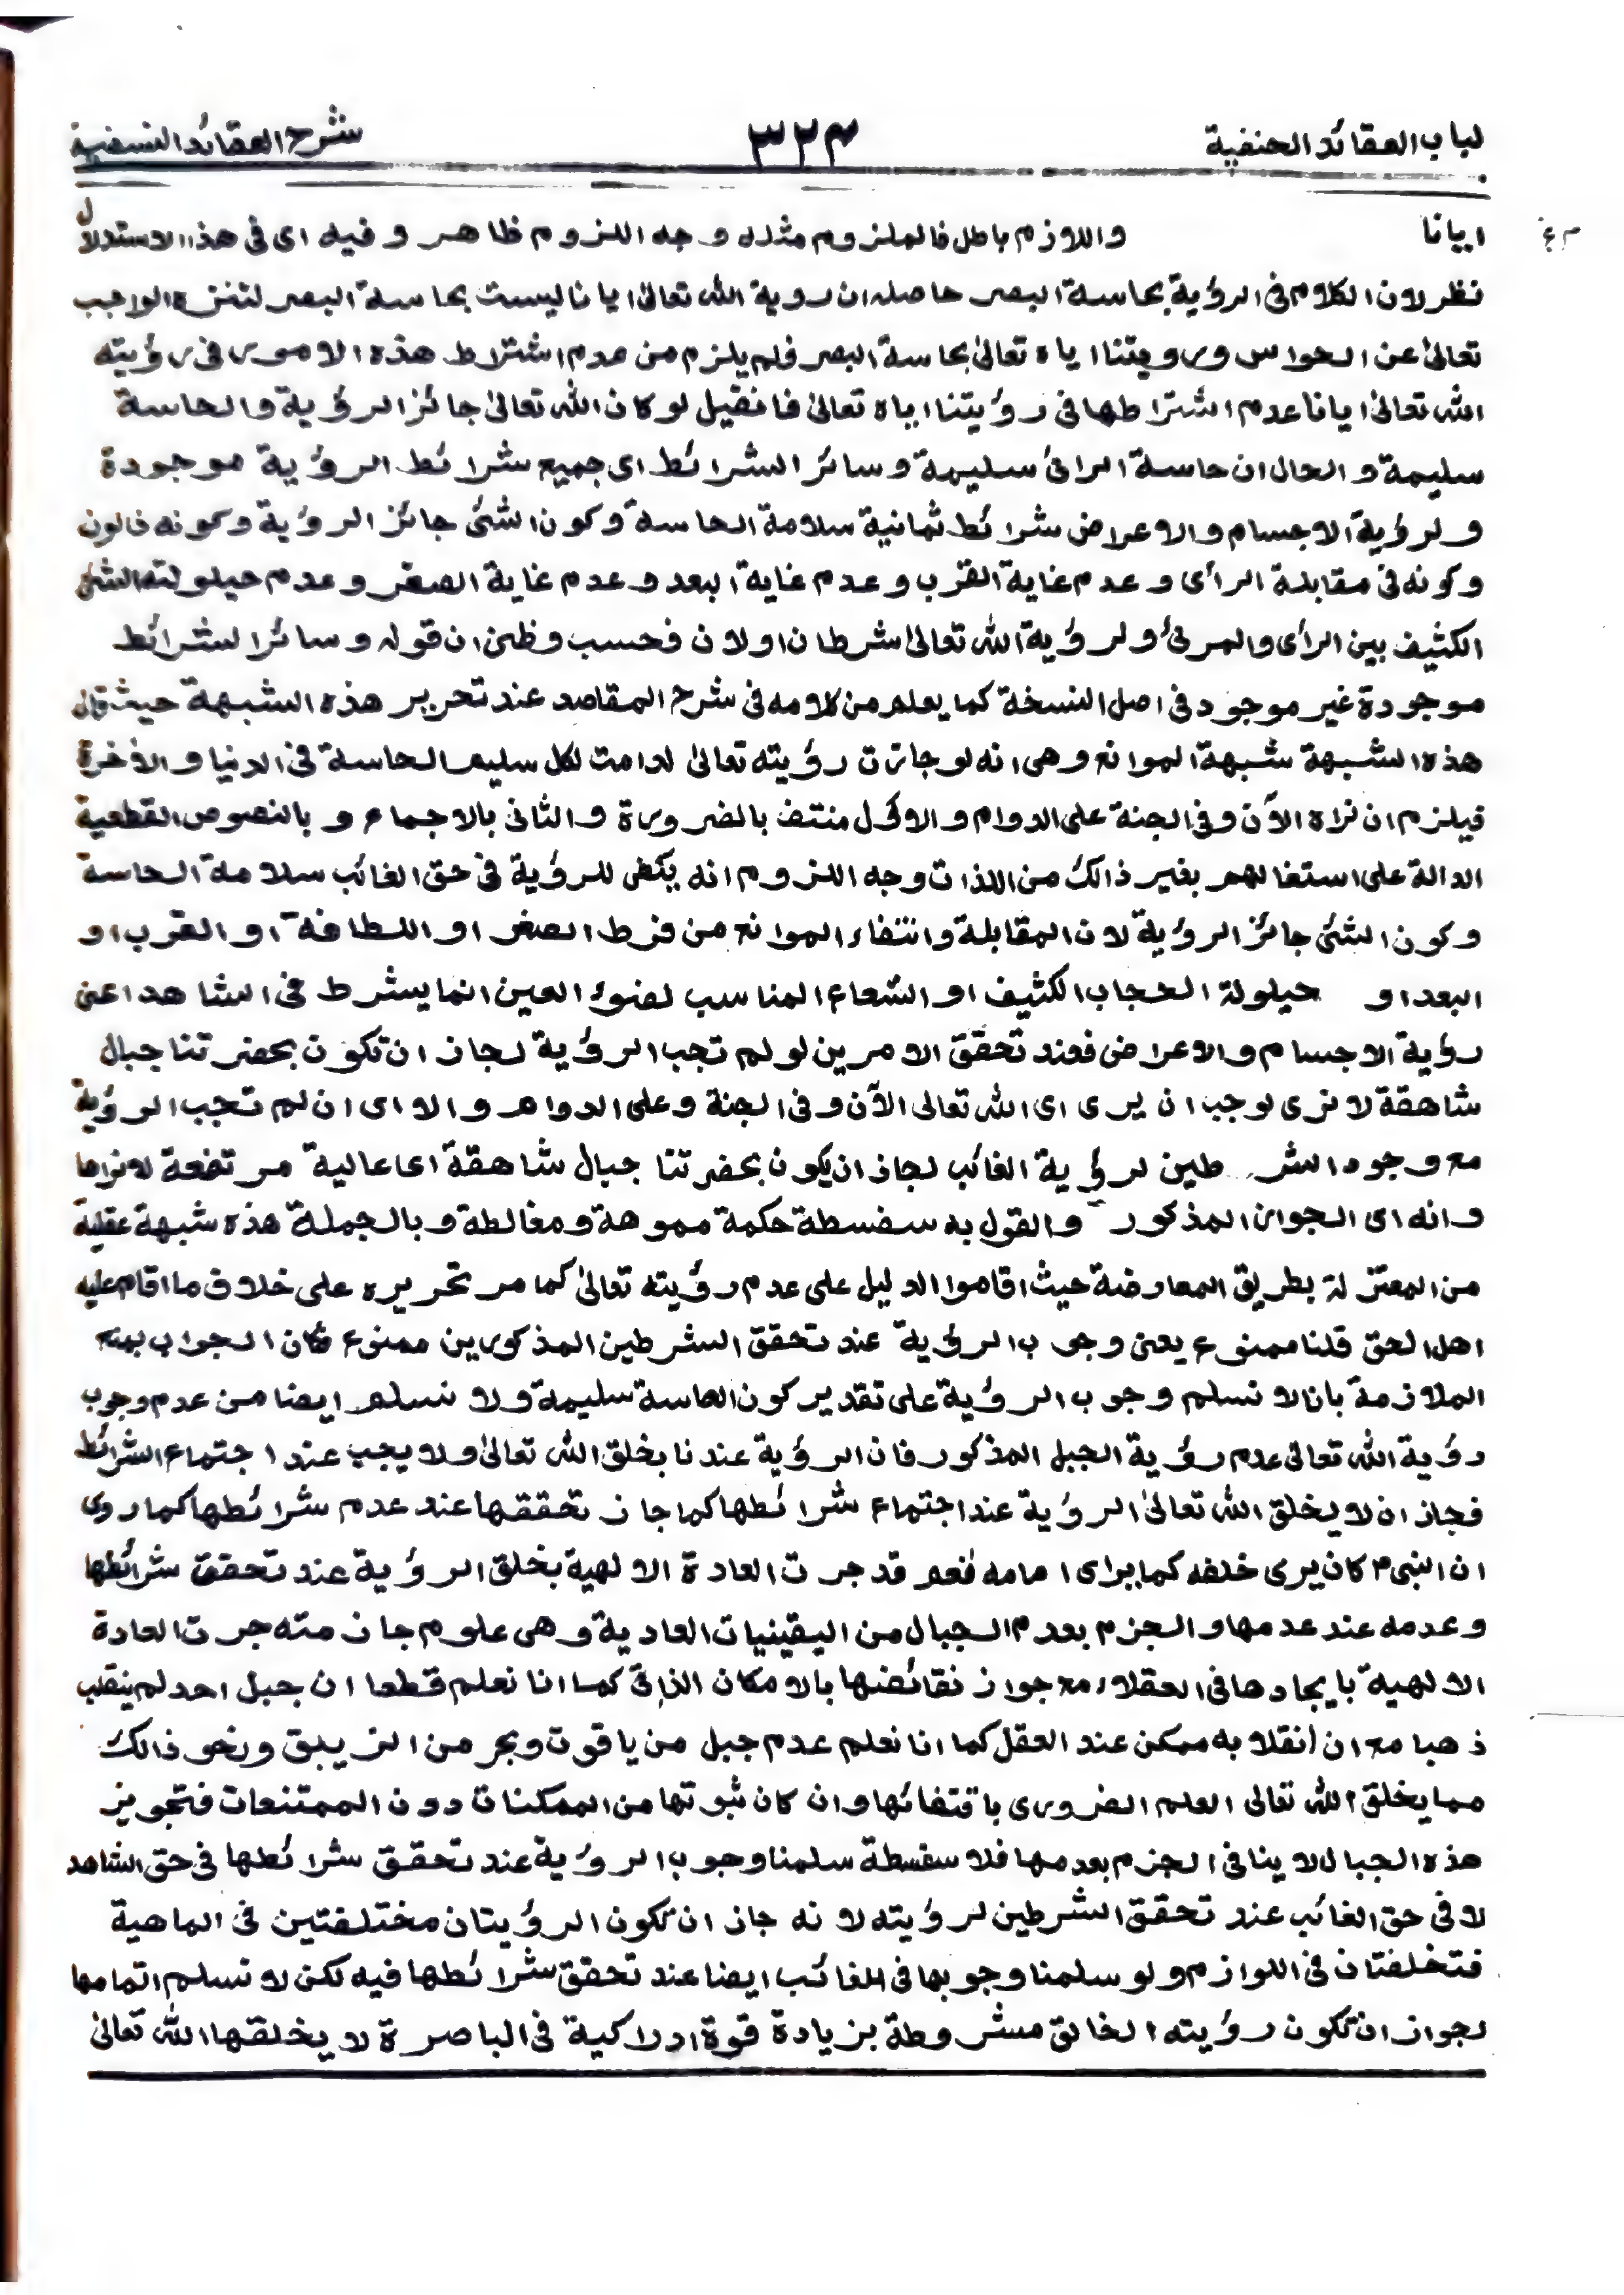 لباب العقائد الحنفية ٣٢٣ شرح العقائد النسفية
ايانا واللازم باطل فالملزوم مثله وجه اللزوم ظاهر وفيه اى فى هذا الاستدلال
نظر لان الكلام فى الرؤية بحاسة البصر حاصله ان روية الله تعالىٰ ايانا ليست بحاسة البصر لتنزه الواجب
تعالىٰ عن الحواس ورويتنا اياه تعالىٰ بحاسة البصر فلم يلزم من عدم اشتراط هذه الامور فى رؤيته
الله تعالىٰ ايانا عدم اشتراطها فى رؤيتنا اياه تعالىٰ فانقيل لو كان الله تعالىٰ جائز الرؤية والحاسة
سليمة والحال ان حاسة الرائى سليمة وسائر الشرائط اى جميع شرائط الرؤية موجودة
ولرؤية الاجسام والاعراض شرائط ثمانية سلامة الحاسة وكون الشئ جائز الرؤية وكونه ذالون
وكونه فى مقابلة الرأى وعدم غاية القرب وعدم غاية البعد وعدم غاية الصغر وعدم حيلولته الشئ
الكثيف بين الرأى والمرئ ولرؤية الله تعالىٰ شرطان اولان فحسب وظنى ان قوله وسائر الشرائط
موجودة غير موجود فى اصل النسخة كما يعلم من كلامه فى شرح المقاصد عند تحرير هذه الشبهة حيث قال
هذه الشبهة شبهة الموانع وهى انه لو جازت رؤيته تعالىٰ لدامت لكل سليم الحاسة فى الدنيا والأخرة
فيلزم ان نراه الآن وفى الجنة على الدوام والاوّل منتف بالضرورة والثانى بالاجماع و بالنصوص القطعية
الدالة على استغالهم بغير ذالك من اللذات وجه اللزوم انه يكفى للرؤية فى حق الغائب سلامة الحاسة
وكون الشئ جائز الرؤية لان المقابلة وانتفاء الموانع من فرط الصغر او اللطافة او القرب او
البعد او حيلولة الحجاب الكثيف او الشعاع المناسب لضوء العين انما يشرط فى الشاهد اعنى
رؤية الاجسام والاعراض فعند تحقق الامرين لو لم تجب الرؤية لجاز ان تكون بحضرتنا جبال
شاهقة لا نرى لوجب ان يرى اى الله تعالى الآن وفى الجنة وعلى الدوام والا اى ان لم تجب الرؤية
مع وجود الشرطين لرؤية الغائب لجاز ان يكون بحضرتنا جبال شاهقة اى عالية مرتفعة لا نراها
وانه اى الجواز المذكور والقول به سفسطة حكمة مموهة ومغالطة وبالجملة هذه شبهة عقلية
من المعتزلة بطريق المعارضة حيث اقاموا الدليل على عدم رؤيته تعالىٰ كما مر تحريره على خلاف ما اقام عليه
اهل الحق قلنا ممنوع يعنى وجوب الرؤية عند تحقق الشرطين المذكورين ممنوع فكان الجواب بمنع
الملازمة بانا لا نسلم وجوب الرؤية على تقدير كون الحاسة سليمة ولا نسلم ايضا من عدم وجوب
رؤية الله تعالىٰ عدم رؤية الجبل المذكور فان الرؤية عندنا بخلق الله تعالىٰ ولا يجب عند اجتماع الشرائط
فجاز ان لا يخلق الله تعالىٰ الرؤية عند اجتماع شرائطها كما جاز تحققها عند عدم شرائطها كما روى
ان النبى كان يرى خلفه كما يراى امامه نعم قد جرت العادة الالهية بخلق الرؤية عند تحقق شرائطها
وعدمه عند عدمها والجزم بعدم الجبال من اليقينيات العادية وهى علوم جازمته جرت العادة
الالهية بايجادها فى العقلاء مع جواز نقائضها بالامكان الذاتى كما انا نعلم قطعا ان جبل احد لم ينقلب
ذهبا مع ان انقلابه ممكن عند العقل كما انا نعلم عدم جبل من ياقوت وبحر من الزيبق ونحو ذالك
مما يخلق الله تعالى العلم الضرورى باقتفائها وان كان ثبوتها من الممكنات دون الممتنعات فتجويز
هذه الجبال لا ينافى الجزم بعدمها فلا سفسطة سلمنا وجوب الرؤية عند تحقق شرائطها فى حق الشاهد
لا فى حق الغائب عند تحقق الشرطين لرؤيته لانه جاز ان تكون الرؤيتان مختلفتين فى الماهية
فتخلفتان فى اللوازم ولو سلمنا وجوبها فى الغائب ايضا عند تحقق شرائطها فيه لكن لا نسلم اتمامها
لجواز ان تكون رؤيته الخالق مشروطة بزيادة قوة ادراكية فى الباصرة لا يخلقها الله تعالىٰ